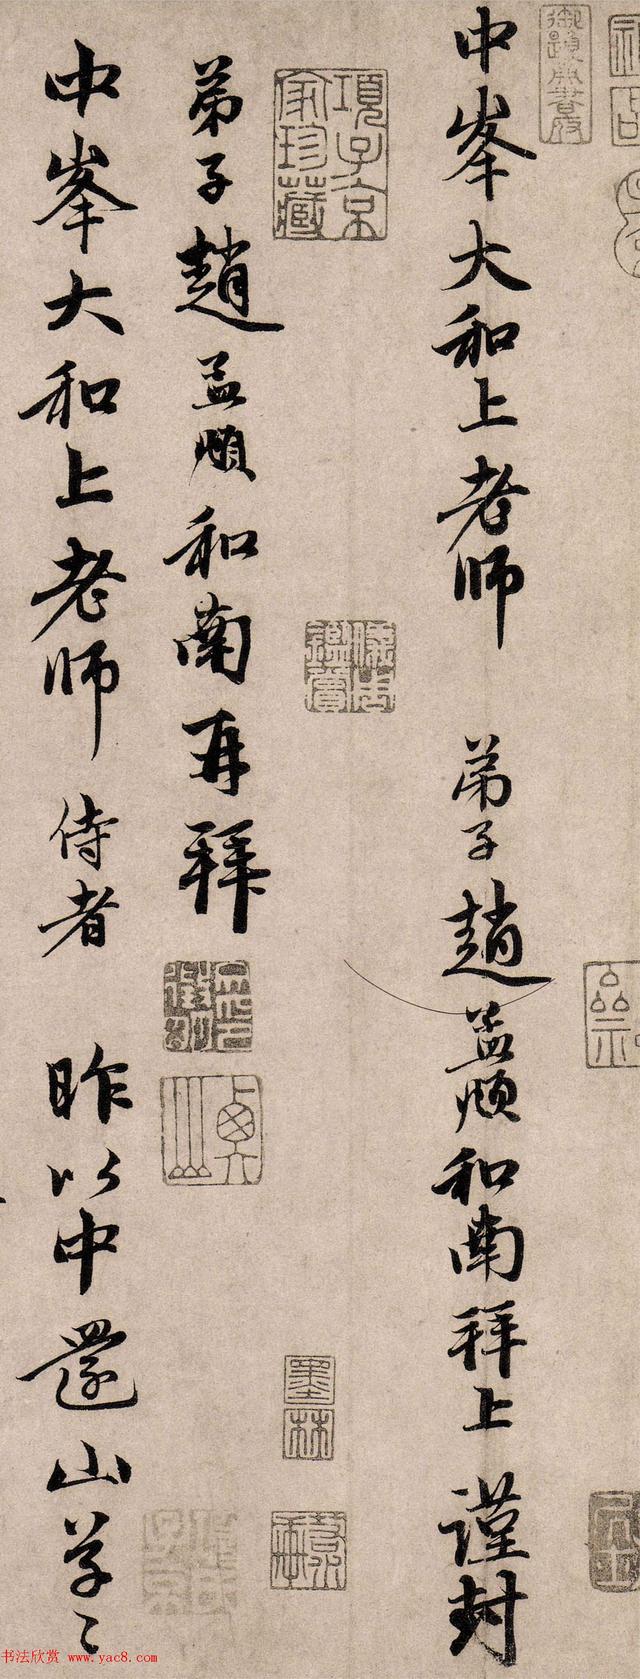 中峯大和上老师 弟子趙孟頫和南拜上 謹封
弟子趙孟頫和南再拜
中峯大和上老师侍者 昨以中還山草〻
項子京家珍藏
墨林
书法欣赏 www.yac8.com